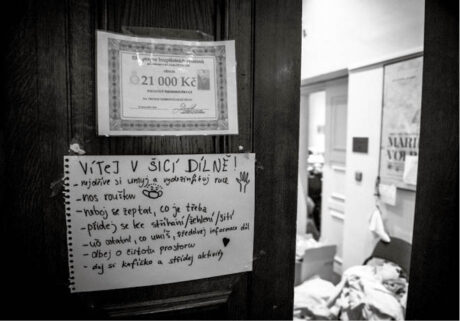 21 000 Kč
VÍTEJ V ŠICÍ DÍLNĚ!
- nejdříve si umyj a vydezinfikuj ruce
- nos roušku
- neboj se zeptat, co je třeba
- přidej se ke stříhání/žehlení/šití
- uč ostatní, co umíš, předávej informace dál
- dbej o čistotu prostoru
- dej si kafíčko a střídej aktivity